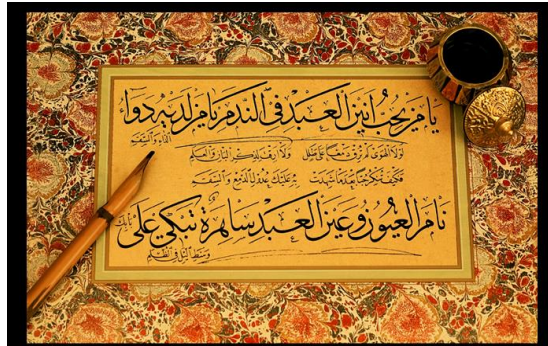 يَا مَنْ يُحِبُّ اَنِينَ الْعَبْدِ فِي النَّدَمِ يَا مَنْ لَدَيْهِ دَوَاءُ
الدَّاءِ وَالسَّقَمِ
لَوْلَا الْهَوَى لَمْ تُرِقْ دَمْعًا عَلَى طَلَلٍ وَلَا اَرِقْتَ لِذِكْرِ الْبَانِ وَالْعَلَمِ
فَكَيْفَ تُنْكِرُ حُبًّا بَعْدَ مَا شَهِدَتْ بِهِ عَلَيْكَ عُدُولُ الدَّمْعِ وَالسَّقَمِ
نَامَ الْعُيُونُ وَعَيْنُ الْعَبْدِ سَاهِرَةٌ تَبْكِي عَلَى
وَسَطَ اللَّيْلِ فِي الظُّلَمِ